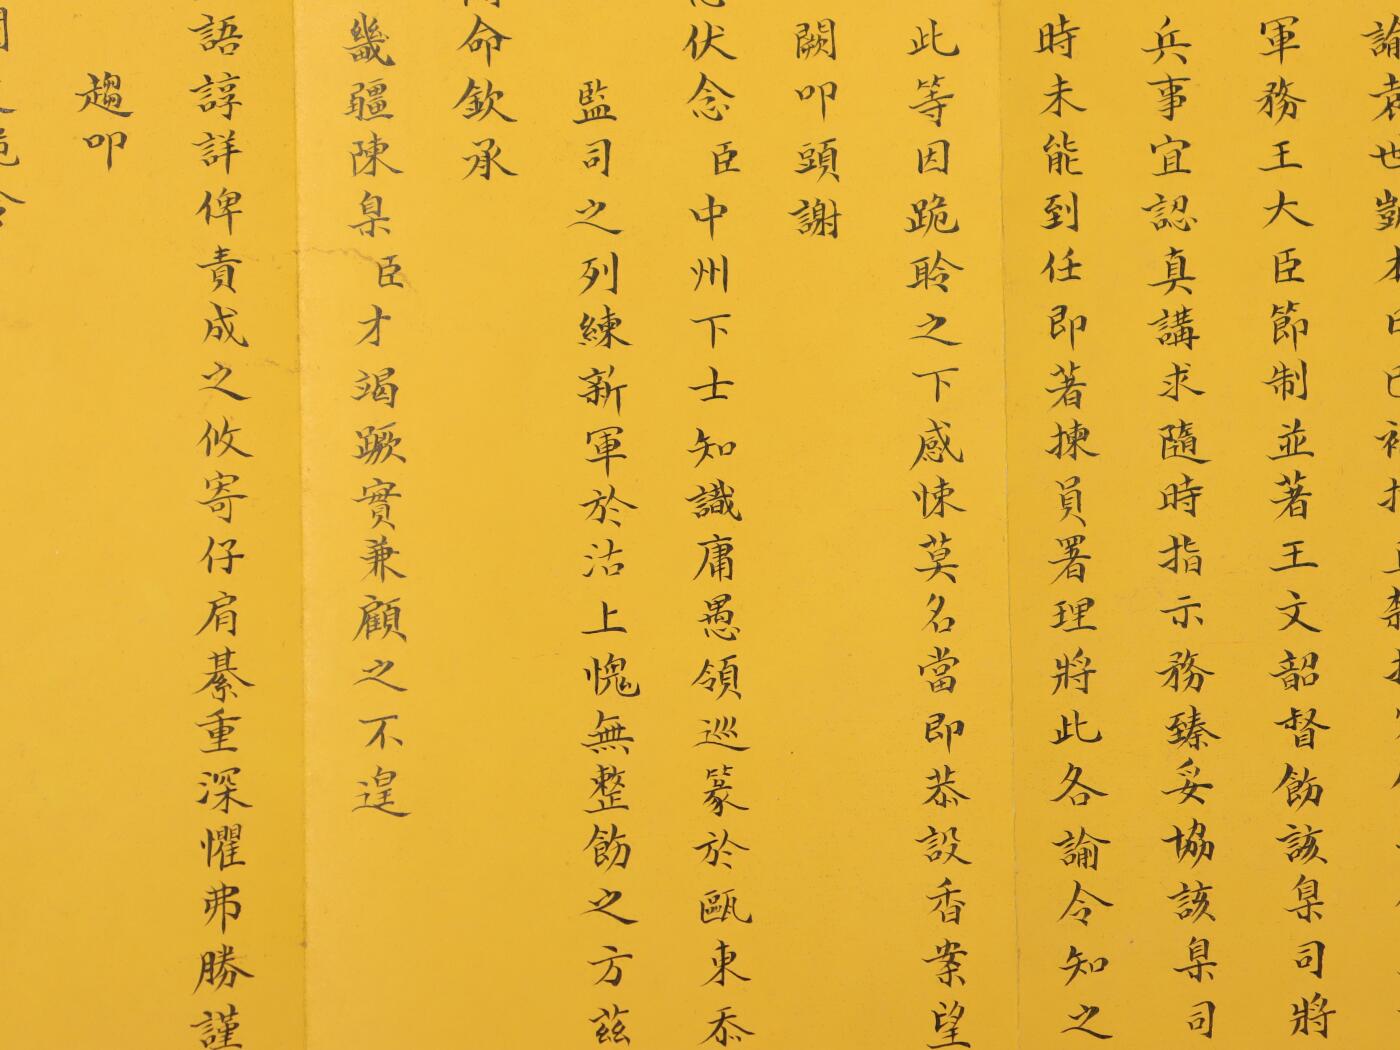 諭袁世凱
軍務王大臣節制並著王文韶督飭該臬司將
兵事宜認真講求隨時指示務臻妥協該臬司
時未能到任即著揀員署理將此各諭令知之
此等因跪聆之下感悚莫名當即恭設香案望
闕叩頭謝
伏念臣中州下士知識庸愚領巡篆於甌東忝
監司之列練新軍於沽上愧無整飭之方茲
命欽承
畿疆陳臬臣才竭蹶實兼顧之不遑
語諄詳俾責成之攸寄仔肩綦重深懼弗勝謹
趨叩